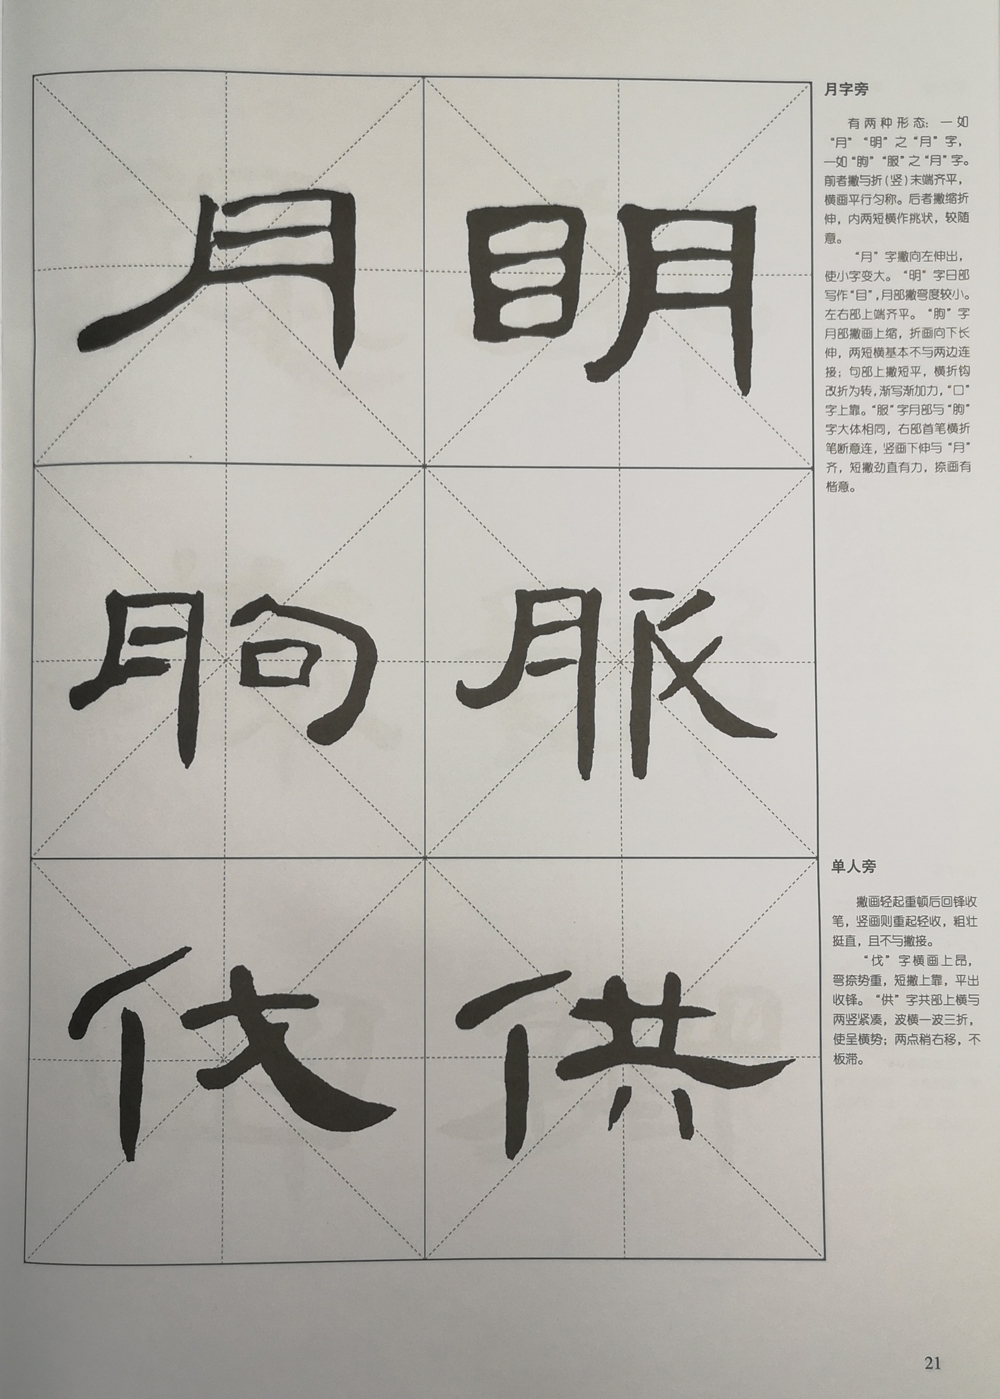 月字旁
有两种形态：一如
“月”“明”之“月”字，
一如“朐”“服”之“月”字。
前者撇与折(竖)末端齐平，
横画平行匀称。后者撇缩折
伸，内两短横作挑状，较随
意。
“月”字撇向左伸出，
使小字变大。“明”字日部
写作“目”，月部撇弯度较小。
左右部上端齐平。“朐”字
月部撇画上缩，折画向下长
伸，两短横基本不与两边连
接；句部上撇短平，横折钩
改折为转，渐写渐加力，“口”
字上靠。“服”字月部与“朐”
字大体相同，右部首笔横折
笔断意连，竖画下伸与“月”
齐，短撇劲直有力，捺画有
楷意。
月明
朐服
伐供
单人旁
撇画轻起重顿后回锋收
笔，竖画则重起轻收，粗壮
挺直，且不与撇接。
“伐”字横画上昂，
弯捺势重，短撇上靠，平出
收锋。“供”字共部上横与
两竖紧凑，波横一波三折，
使呈横势；两点稍右移，不
板滞。
21